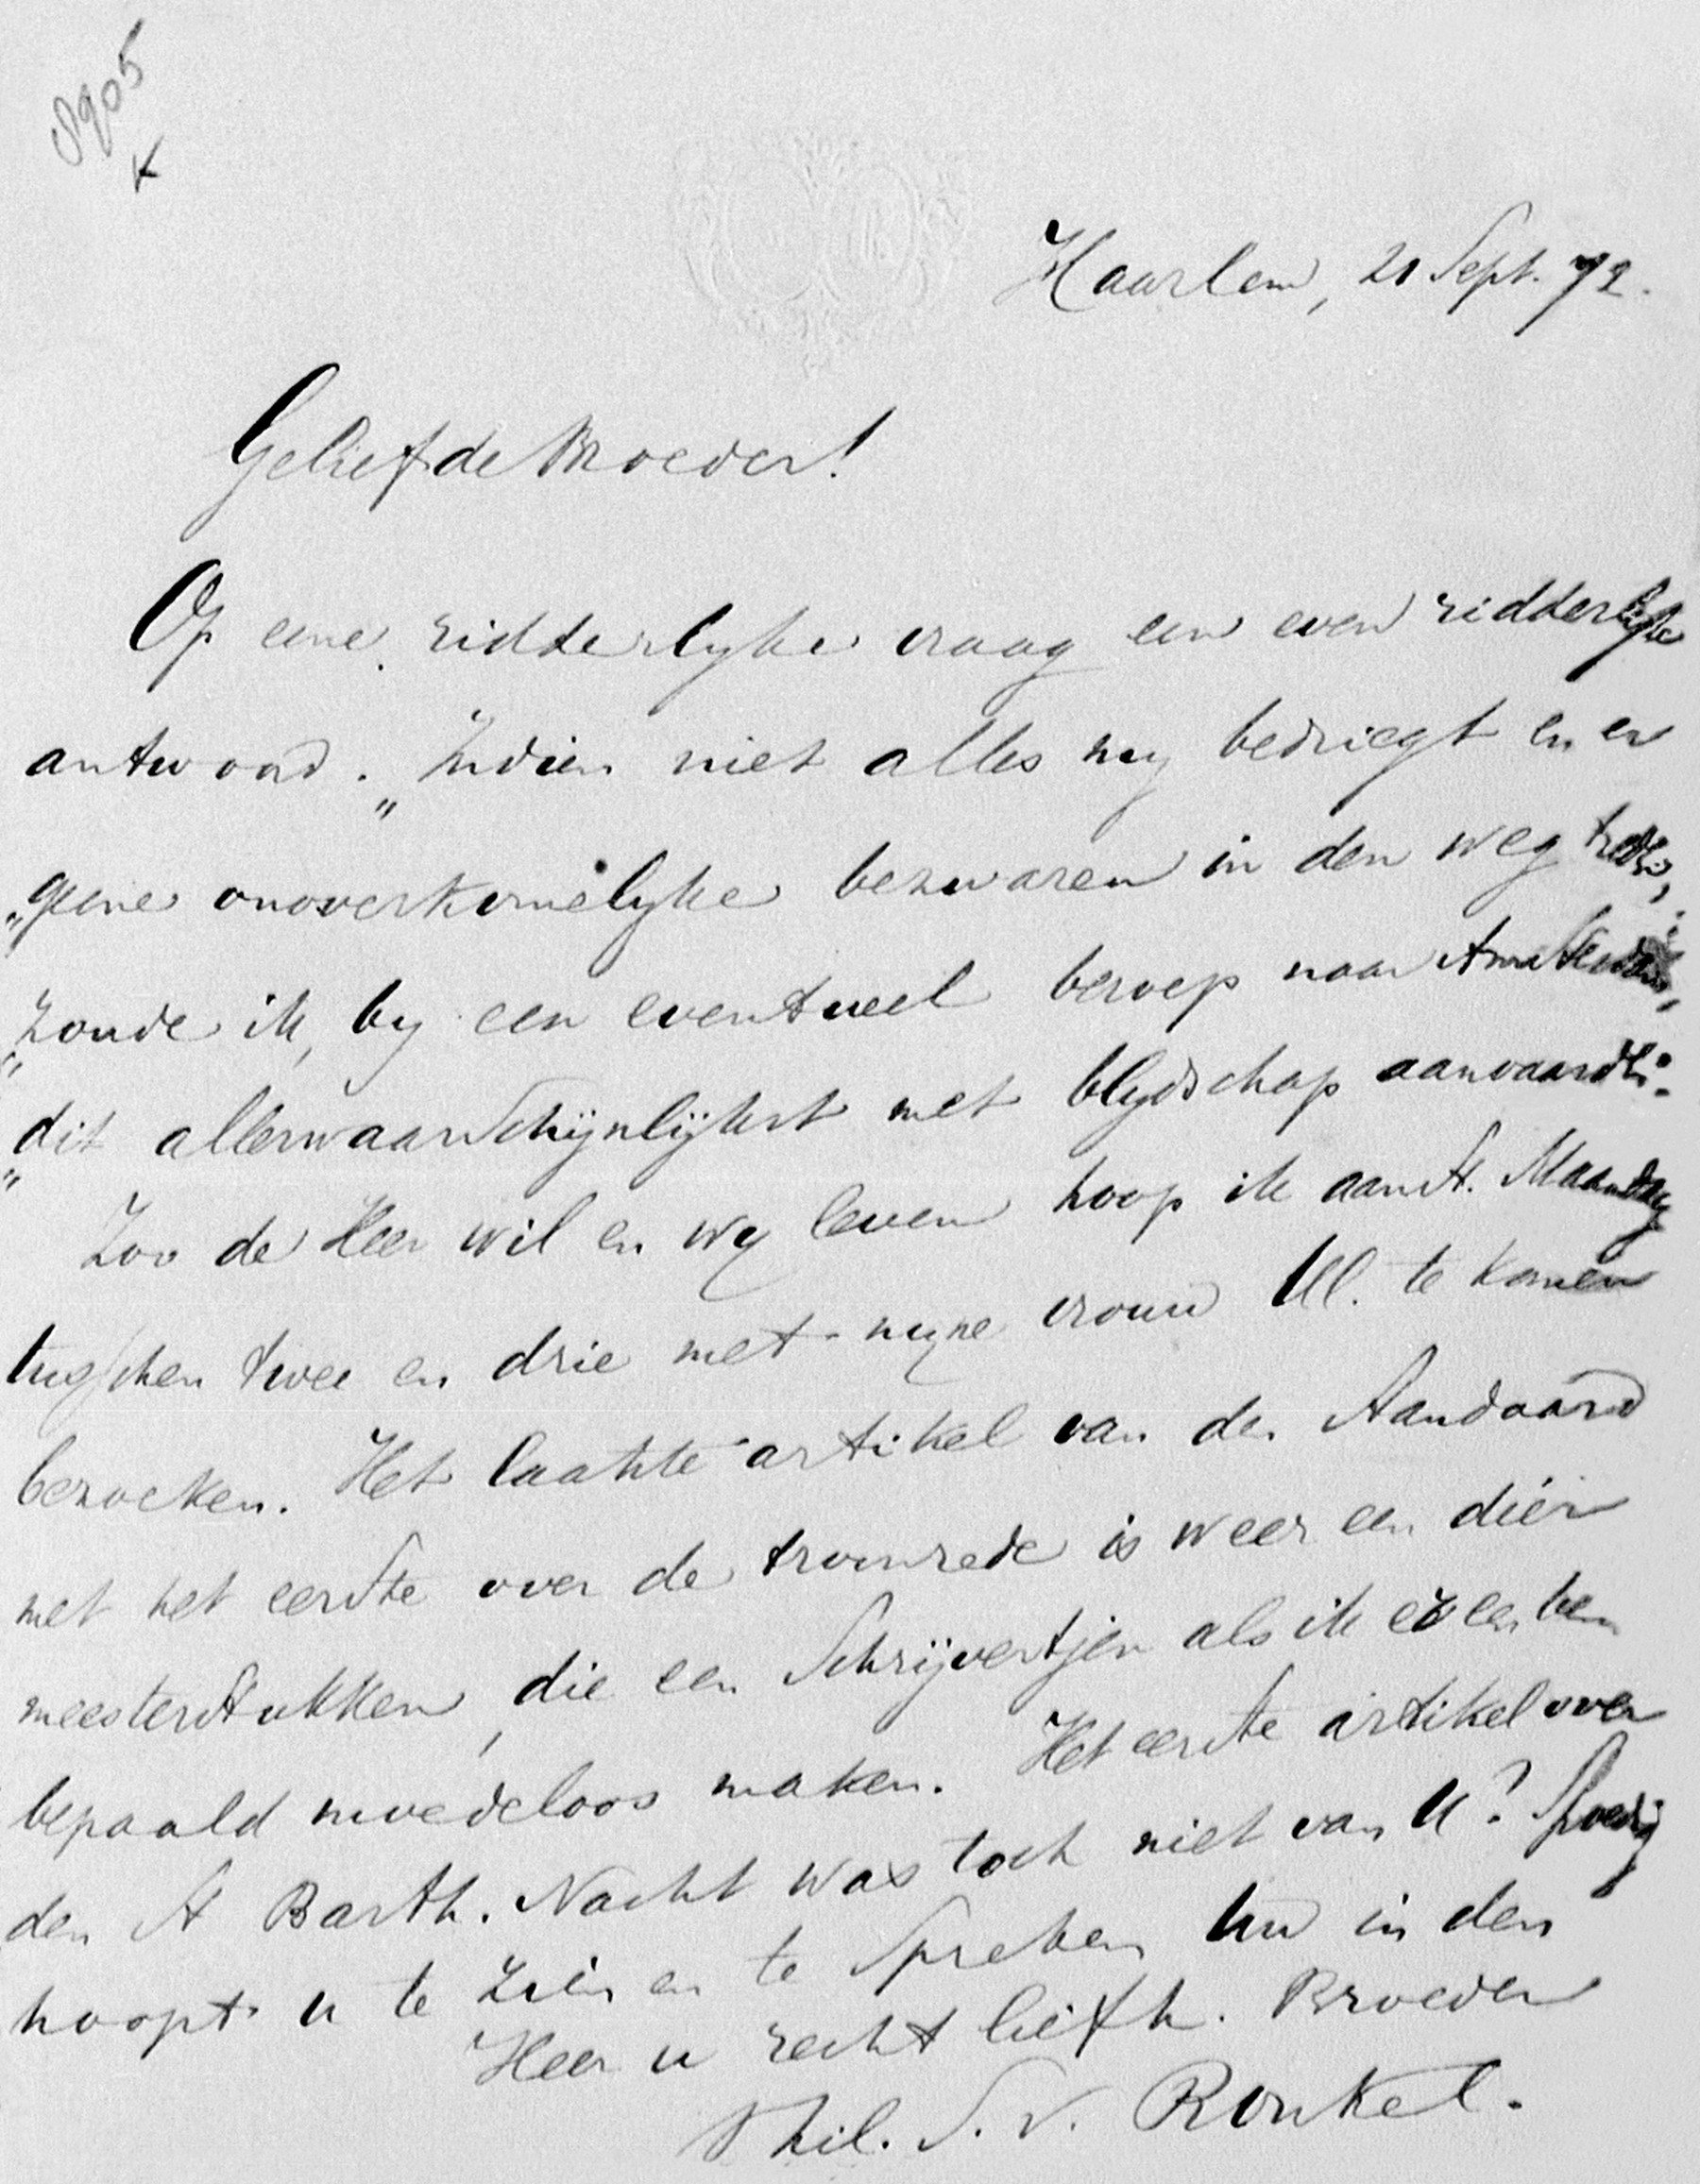 8905
K
Haarlem, 21 Sept. 72.
Geliefde Broeder!
Op eene ridderlyke vraag een even ridderlyk
antwoord. „Indien niet alles my bedriegt en er
„geene onoverkomelyke bezwaren in den weg treden,
„zoude ik, by een eventueel beroep naar Amsterdam,
„dit allerwaarschijnlijkst met blydschap aanvaarden."
Zoo de Heer wil en wy leven hoop ik aanst. Maandag
tusschen twee en drie met myne vrouw Ul. te komen
bezoeken. Het laatste artikel van de Standaard
met het eerste over de troonrede is weer een dier
meesterstukken, die een schrijvertjen als ik er een ben
bepaald moedeloos maken. Het eerste artikel over
den St Barth. Nacht was toch niet van U? Spoedig
hoopt u te zien en te spreken Uw in den
Heer u recht liefh. Broeder
Phil. S. v. Ronkel.